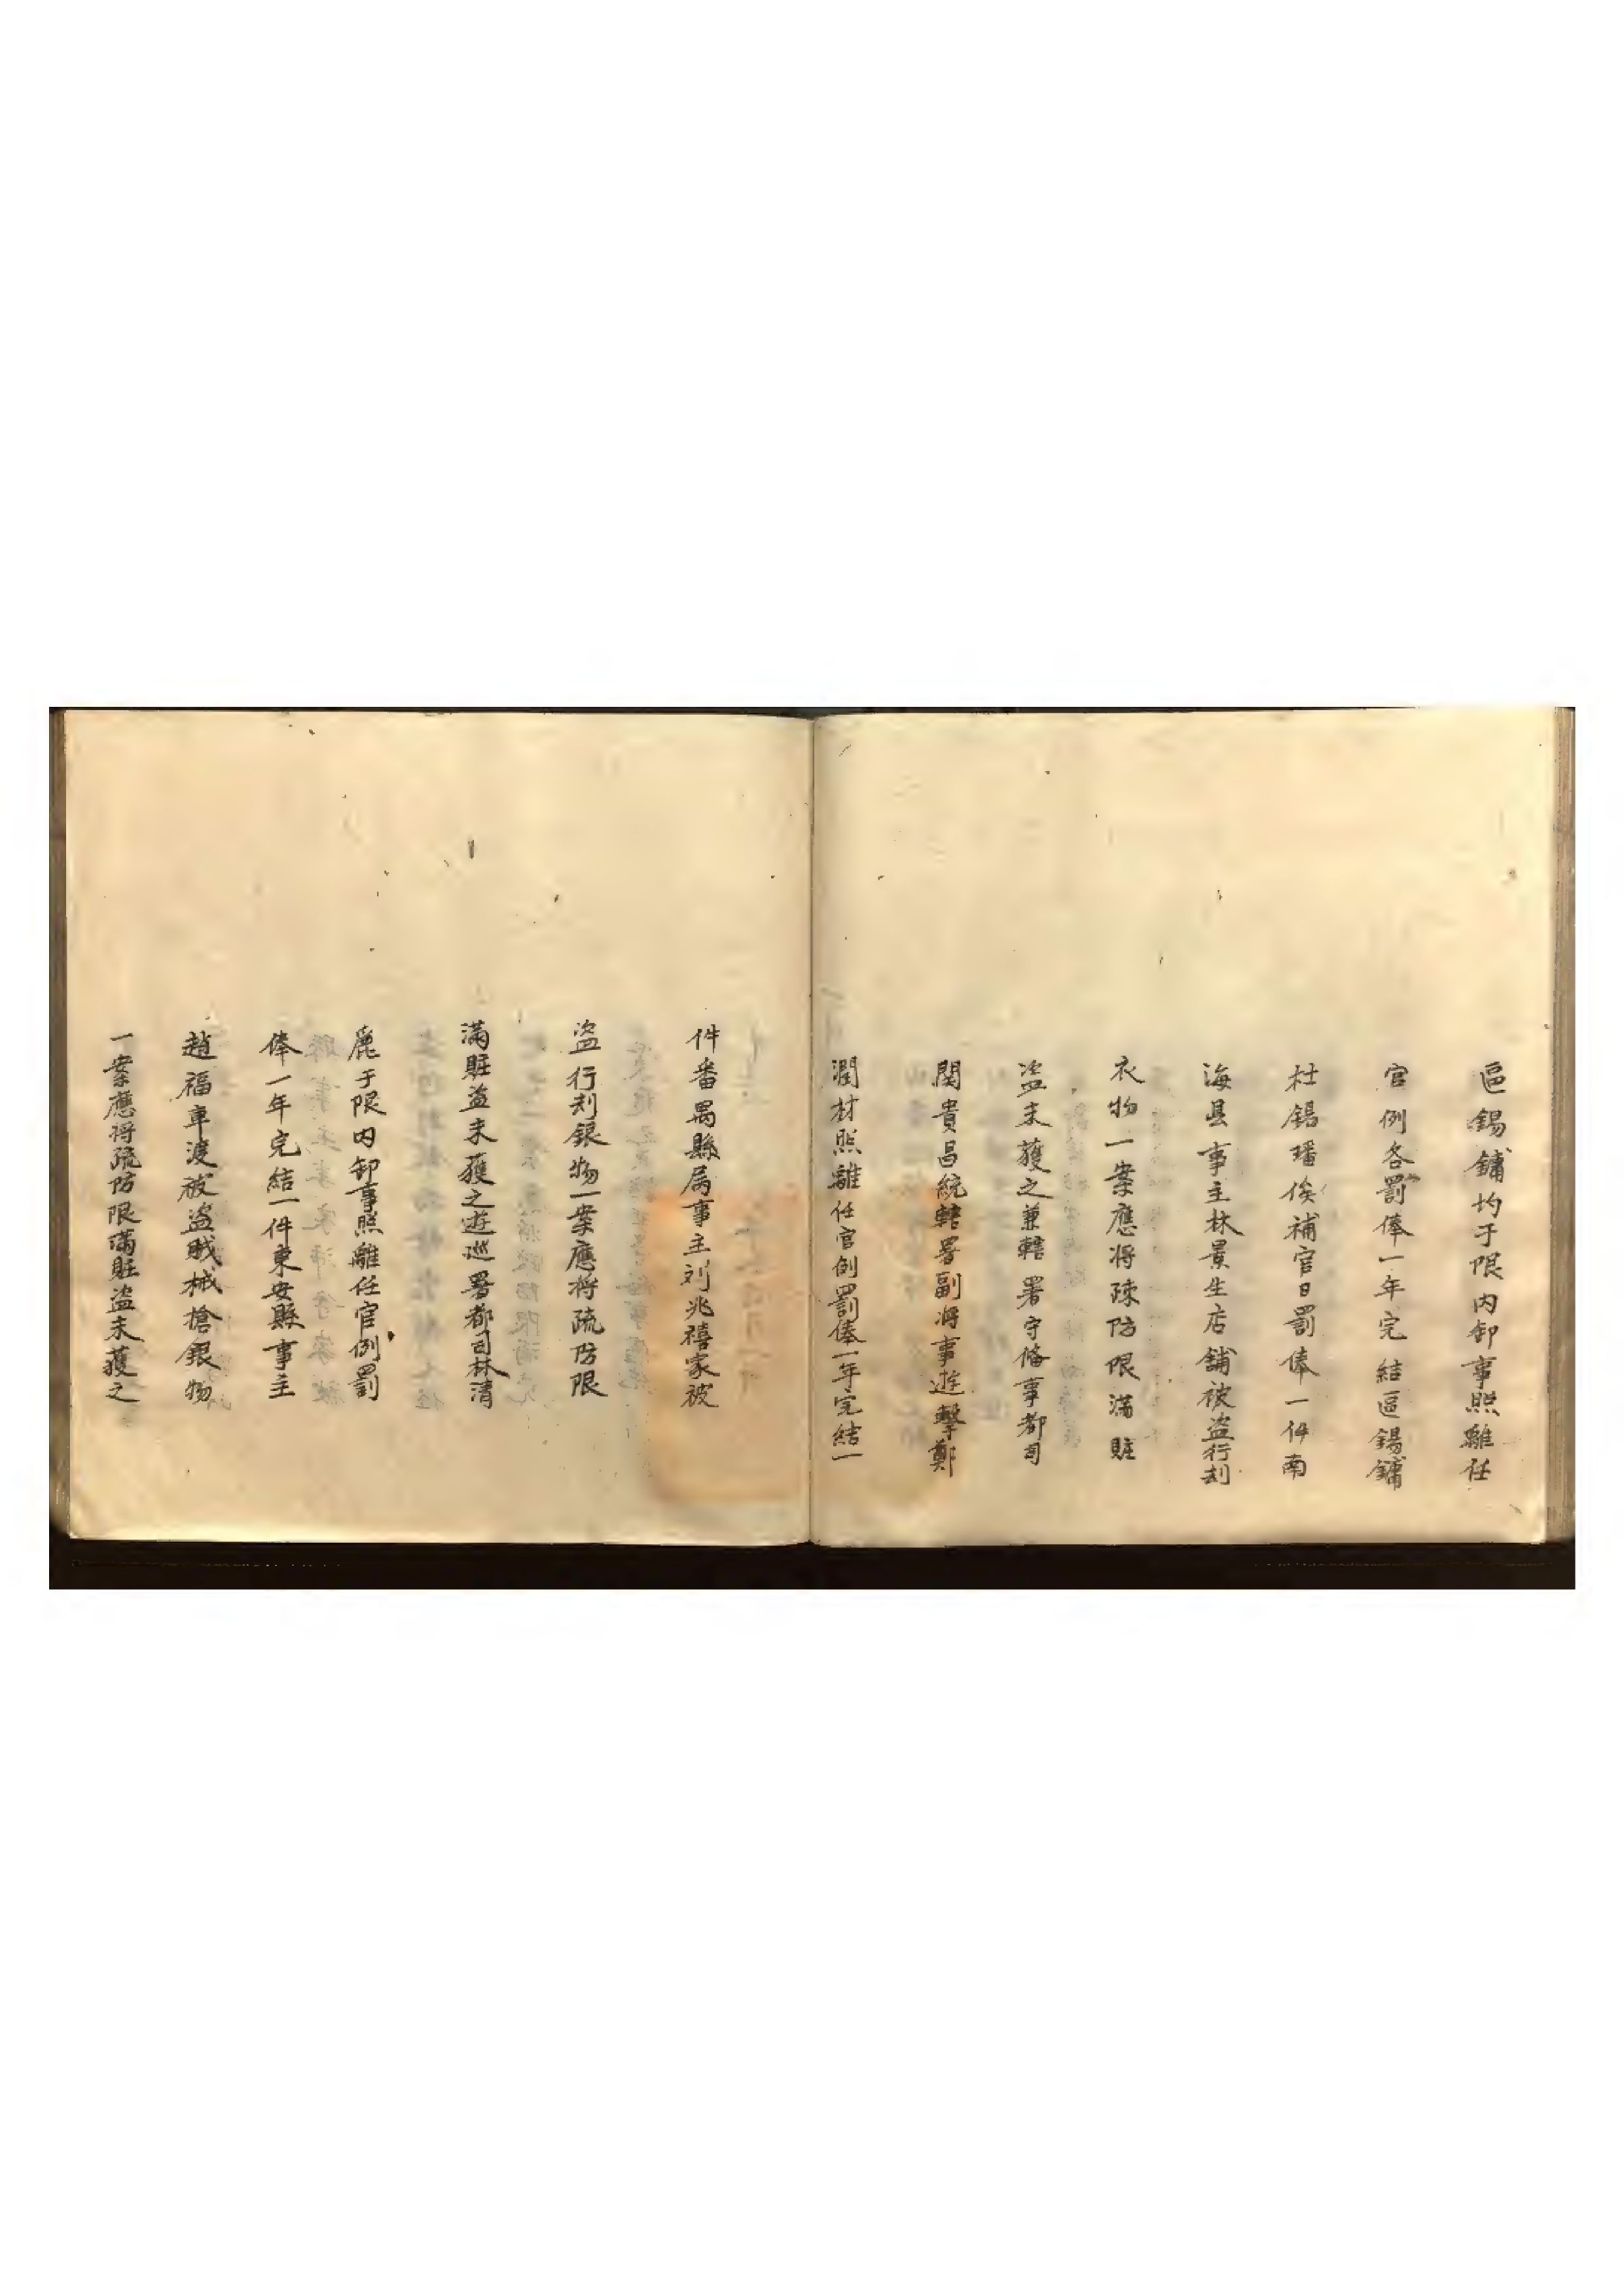 區錫鏞均于限内卸事照離任
官例各罰俸一年完結區錫鏞
杜錫璠俟補官日罰俸一件南
海县事主林景生店舖被盗行刦
衣物一案應将疎防限滿賍
盗未獲之兼轄署守俻事都司
関貴昌統轄署副将事遊擊鄭
潤材照離任官例罰俸一年完結一
件番禺縣属事主刘兆禧家被
盗行刦銀物一案應将疏防限
滿賍盗未獲之遊巡署都司林清
麃于限内卸事照離任官例罰
俸一年完結一件東安縣事主
趙福車渡被盗戝械搶銀物
一案應将疏防限滿賍盗未獲之